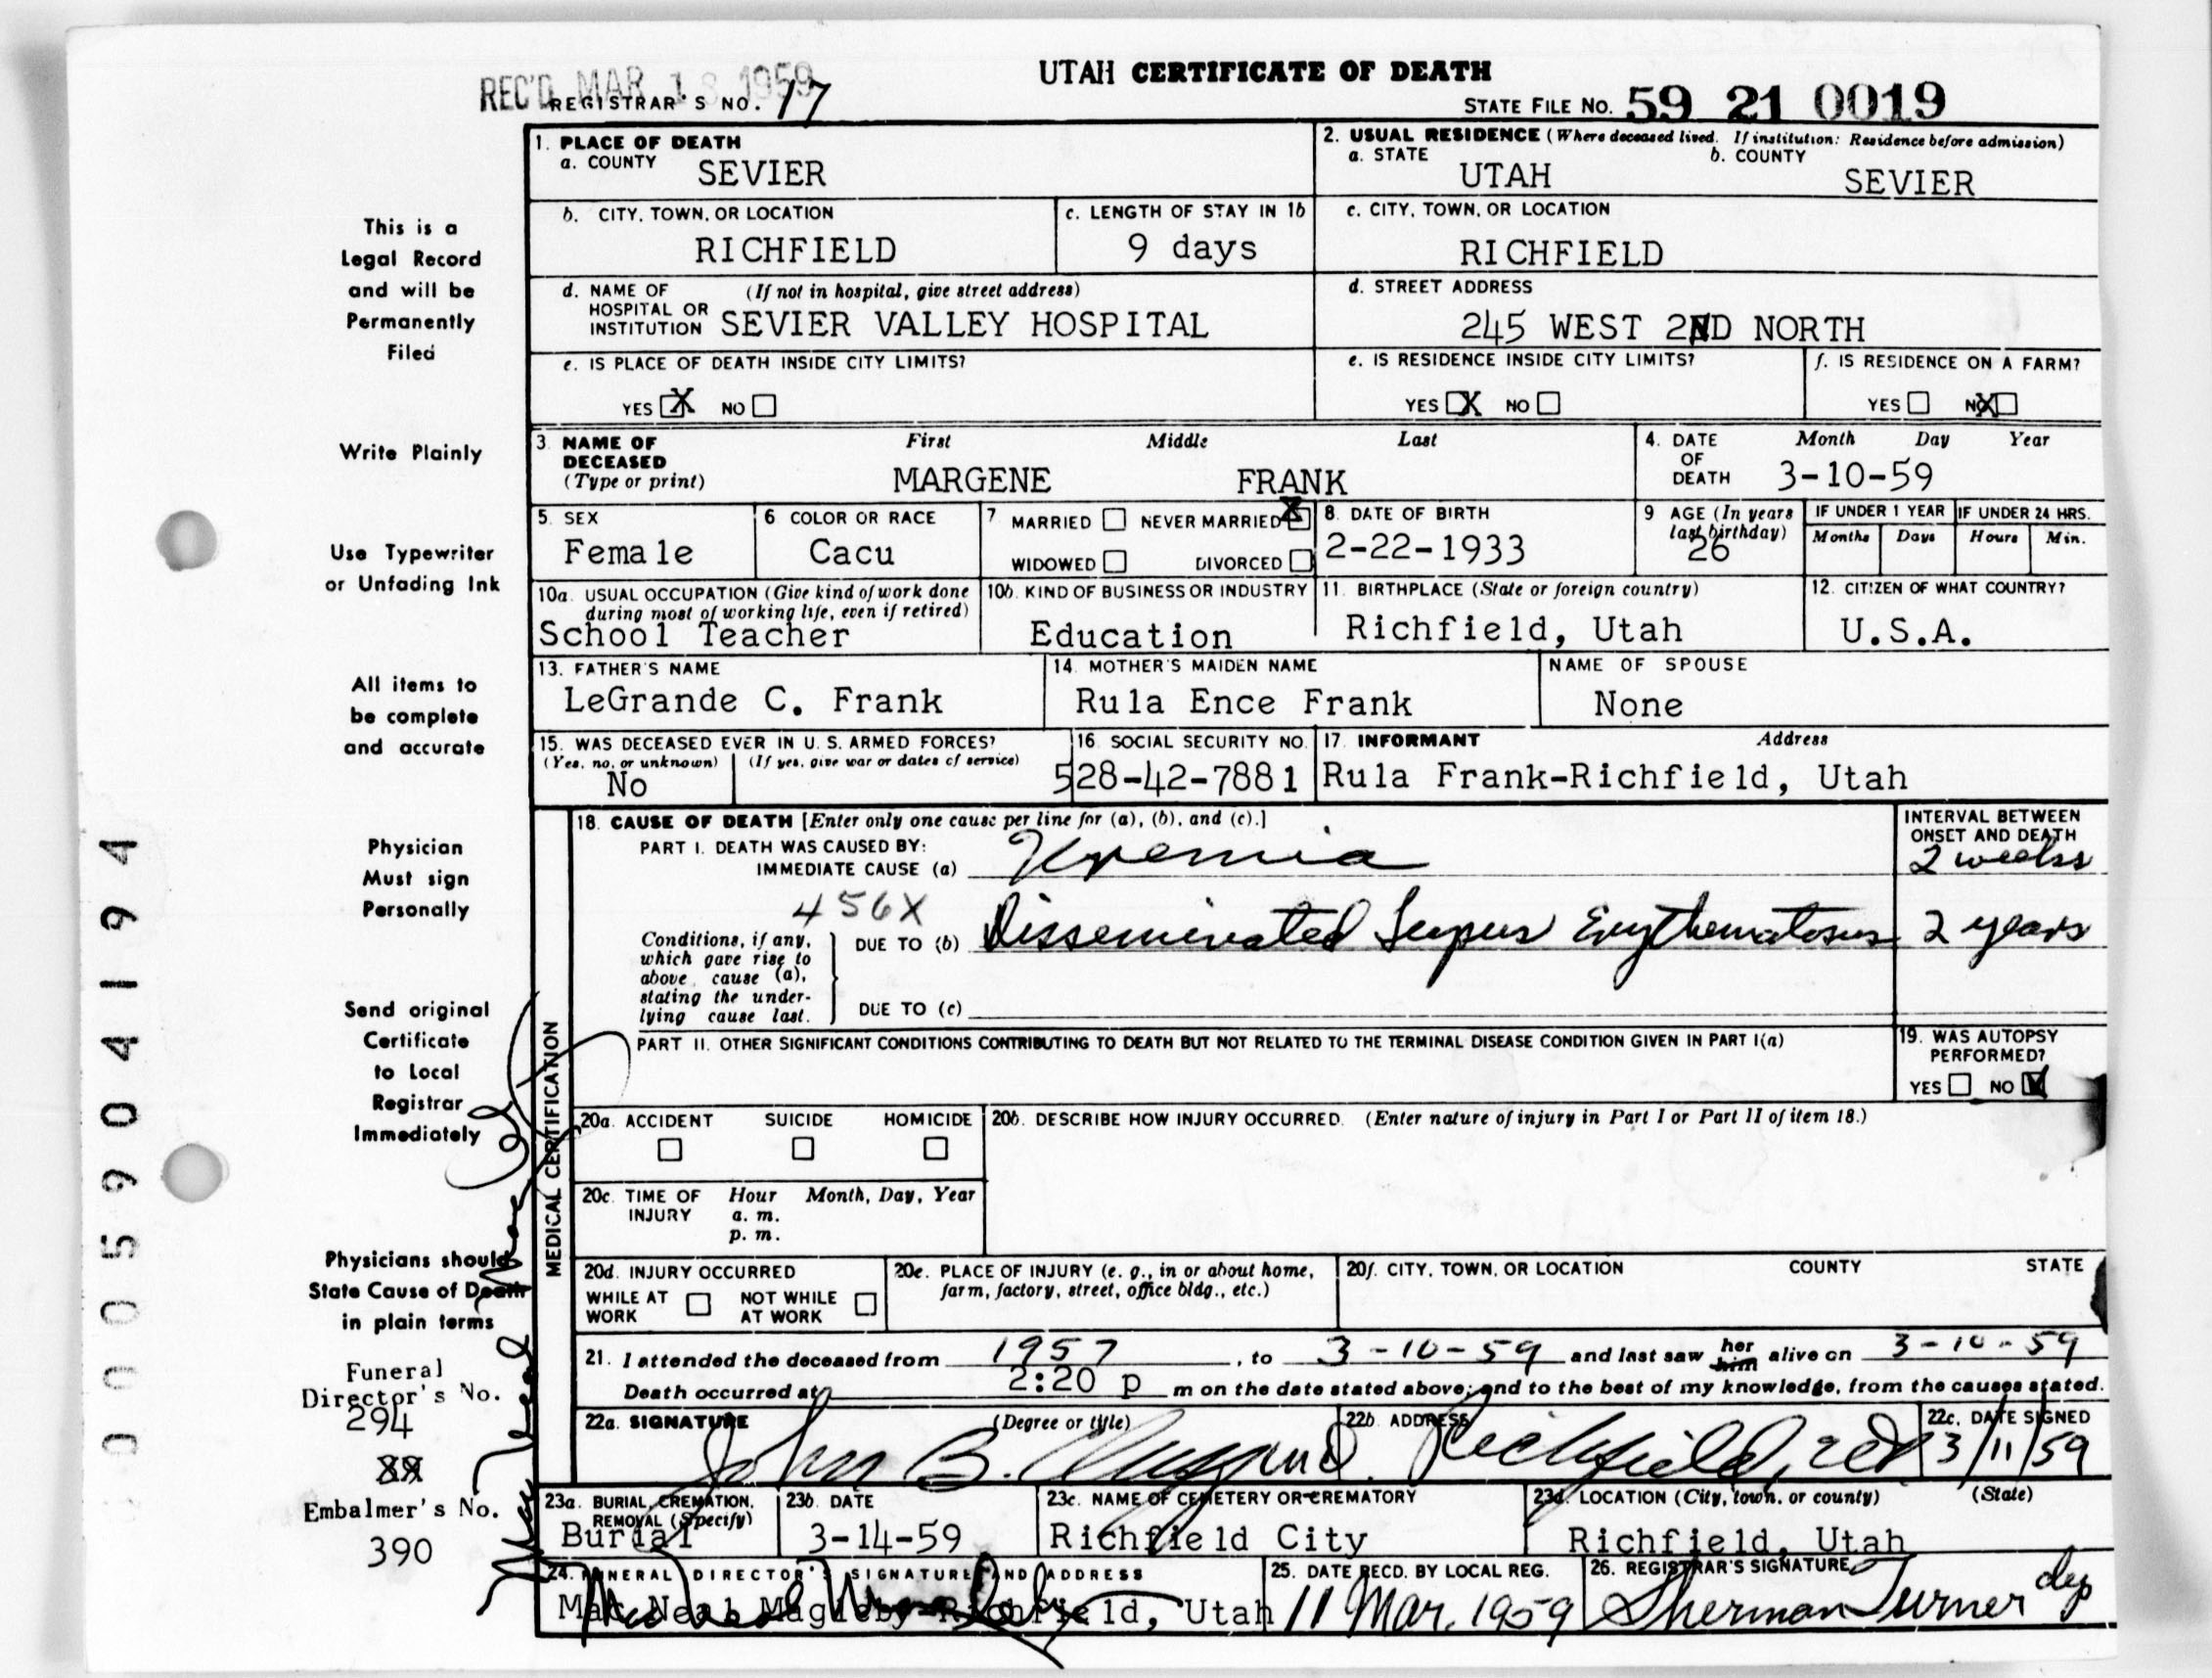 UTAH CERTIFICATE OF DEATH
REC'D MAR 18 1959
REGISTRAR'S NO. 17
STATE FILE NO. 59 21 0019
1. PLACE OF DEATH
a. COUNTY SEVIER
2. USUAL RESIDENCE (Where deceased lived. If institution: Residence before admission)
a. STATE UTAH b. COUNTY SEVIER
b. CITY, TOWN, OR LOCATION RICHFIELD
c. LENGTH OF STAY IN 1b 9 days
c. CITY, TOWN, OR LOCATION RICHFIELD
d. NAME OF HOSPITAL OR INSTITUTION (If not in hospital, give street address) SEVIER VALLEY HOSPITAL
d. STREET ADDRESS 245 WEST 2ND NORTH
e. IS PLACE OF DEATH INSIDE CITY LIMITS?
YES X NO
e. IS RESIDENCE INSIDE CITY LIMITS?
YES X NO
f. IS RESIDENCE ON A FARM?
YES NO X
3. NAME OF DECEASED (Type or print) First Middle Last
MARGENE FRANK
4. DATE OF DEATH Month Day Year
3-10-59
5. SEX Female
6 COLOR OR RACE Cacu
7 MARRIED NEVER MARRIED X
WIDOWED DIVORCED
8. DATE OF BIRTH 2-22-1933
9 AGE (In years last birthday) 26
IF UNDER 1 YEAR Months Days
IF UNDER 24 HRS. Hours Min.
10a. USUAL OCCUPATION (Give kind of work done during most of working life, even if retired)
School Teacher
10b. KIND OF BUSINESS OR INDUSTRY Education
11. BIRTHPLACE (State or foreign country) Richfield, Utah
12. CITIZEN OF WHAT COUNTRY? U.S.A.
13. FATHER'S NAME LeGrande C. Frank
14. MOTHER'S MAIDEN NAME Rula Ence Frank
NAME OF SPOUSE None
15. WAS DECEASED EVER IN U. S. ARMED FORCES?
(Yes, no, or unknown) (If yes, give war or dates of service)
No
16. SOCIAL SECURITY NO. 528-42-7881
17. INFORMANT Address
Rula Frank-Richfield, Utah
MEDICAL CERTIFICATION
18. CAUSE OF DEATH [Enter only one cause per line for (a), (b), and (c).]
INTERVAL BETWEEN ONSET AND DEATH
PART I. DEATH WAS CAUSED BY:
IMMEDIATE CAUSE (a) Uremia 2 weeks
456X
Conditions, if any, which gave rise to above cause (a), stating the underlying cause last.
DUE TO (b) Disseminated Lupus Erythematosus 2 years
DUE TO (c)
PART II. OTHER SIGNIFICANT CONDITIONS CONTRIBUTING TO DEATH BUT NOT RELATED TO THE TERMINAL DISEASE CONDITION GIVEN IN PART I(a)
19. WAS AUTOPSY PERFORMED?
YES NO
20a. ACCIDENT SUICIDE HOMICIDE
20b. DESCRIBE HOW INJURY OCCURRED. (Enter nature of injury in Part I or Part II of item 18.)
20c. TIME OF INJURY Hour Month, Day, Year
a. m.
p. m.
20d. INJURY OCCURRED
WHILE AT WORK NOT WHILE AT WORK
20e. PLACE OF INJURY (e. g., in or about home, farm, factory, street, office bldg., etc.)
20f. CITY, TOWN, OR LOCATION COUNTY STATE
21. I attended the deceased from 1957, to 3-10-59 and last saw her him alive on 3-10-59
Death occurred at 2:20 p m on the date stated above; and to the best of my knowledge, from the causes stated.
22a. SIGNATURE (Degree or title)
John B.
22b. ADDRESS Richfield, Ut
22c. DATE SIGNED 3/11/59
23a. BURIAL, CREMATION, REMOVAL (Specify) Burial
23b. DATE 3-14-59
23c. NAME OF CEMETERY OR CREMATORY Richfield City
23d. LOCATION (City, town, or county) (State)
Richfield, Utah
24. FUNERAL DIRECTOR'S SIGNATURE AND ADDRESS
Mac Neal Magleby-Richfield, Utah
25. DATE RECD. BY LOCAL REG. 11 Mar. 1959
26. REGISTRAR'S SIGNATURE Sherman Turner dep
This is a
Legal Record
and will be
Permanently
Filed
Write Plainly
Use Typewriter
or Unfading Ink
All items to
be complete
and accurate
Physician
Must sign
Personally
Send original
Certificate
to Local
Registrar
Immediately
Physicians should
State Cause of Death
in plain terms
Funeral
Director's No.
294
Embalmer's No.
390
005904194